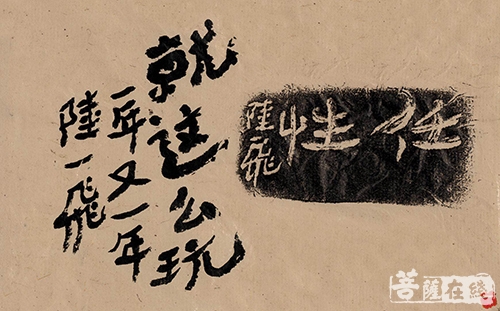 任性
陸一飛
就這么玩
一年又一年
陸一飛
菩薩在綫